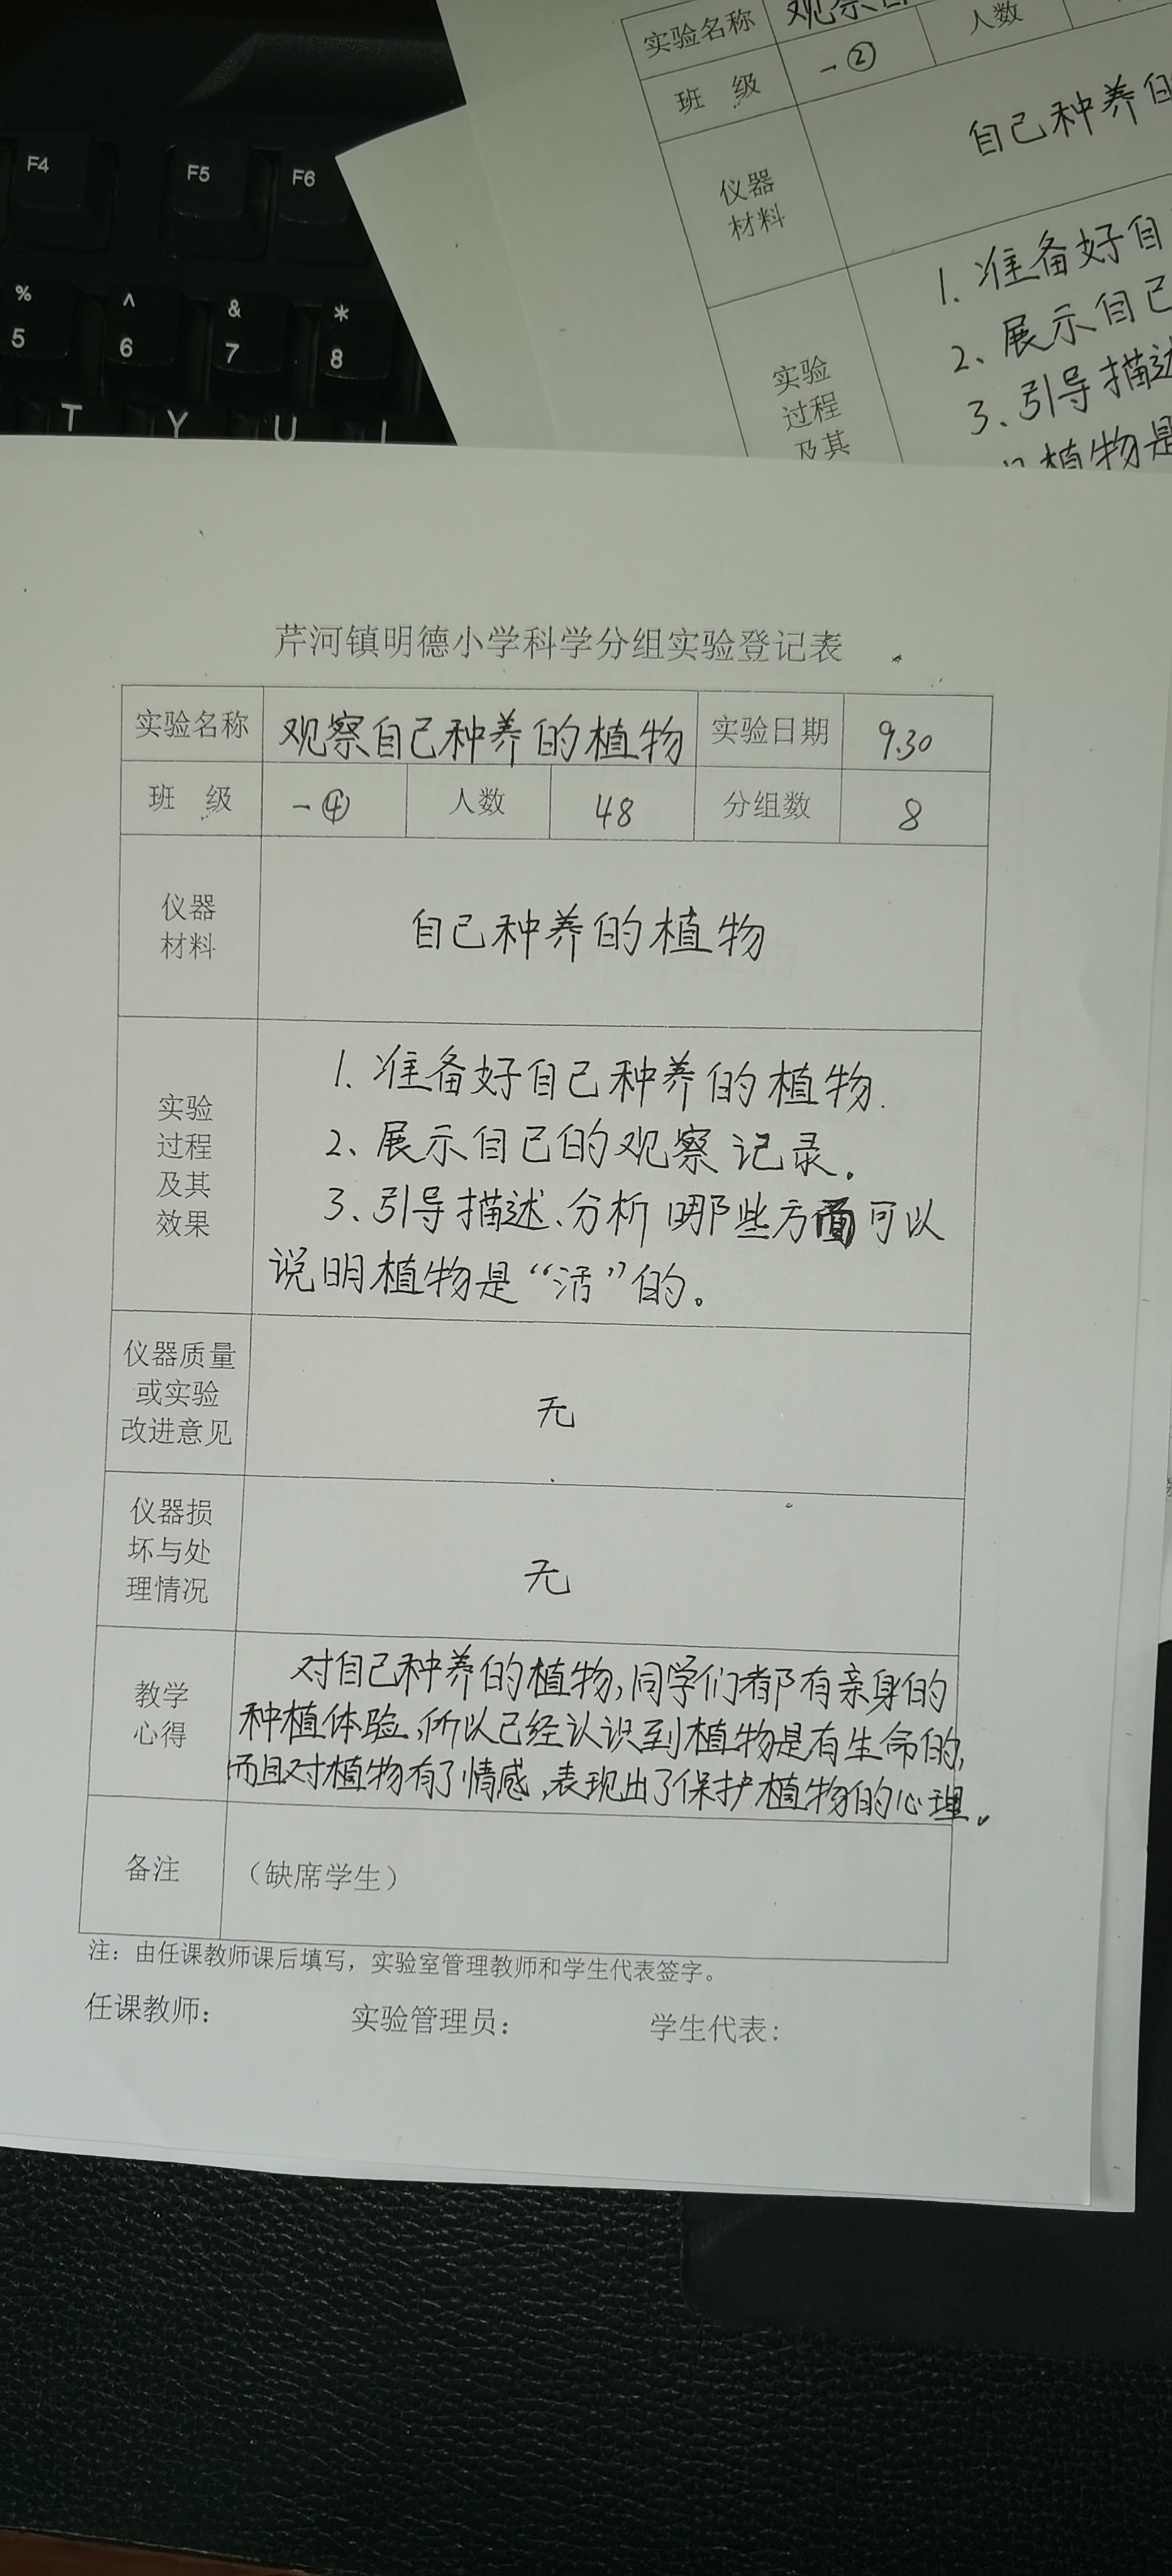 F4
F5
F6
%
5
^
6
&
7
*
8
T
Y
U
实验名称
人数
班 级
一②
仪器
材料
自己种养
实验
过程
及其
1. 准备好自
2、展示自己
3、引导描述
植物是
芹河镇明德小学科学分组实验登记表
实验名称 观察自己种养的植物 实验日期 9.30
班 级 一④ 人数 48 分组数 8
仪器
材料
自己种养的植物
实验
过程
及其
效果
1、准备好自己种养的植物.
2、展示自己的观察记录。
3、引导描述、分析哪些方面可以
说明植物是“活”的。
仪器质量
或实验
改进意见
无
仪器损
坏与处
理情况
无
教学
心得
对自己种养的植物,同学们都有亲身的
种植体验,所以已经认识到植物是有生命的,
而且对植物有了情感,表现出了保护植物的心理。
备注 （缺席学生）
注：由任课教师课后填写，实验室管理教师和学生代表签字。
任课教师： 实验管理员： 学生代表：